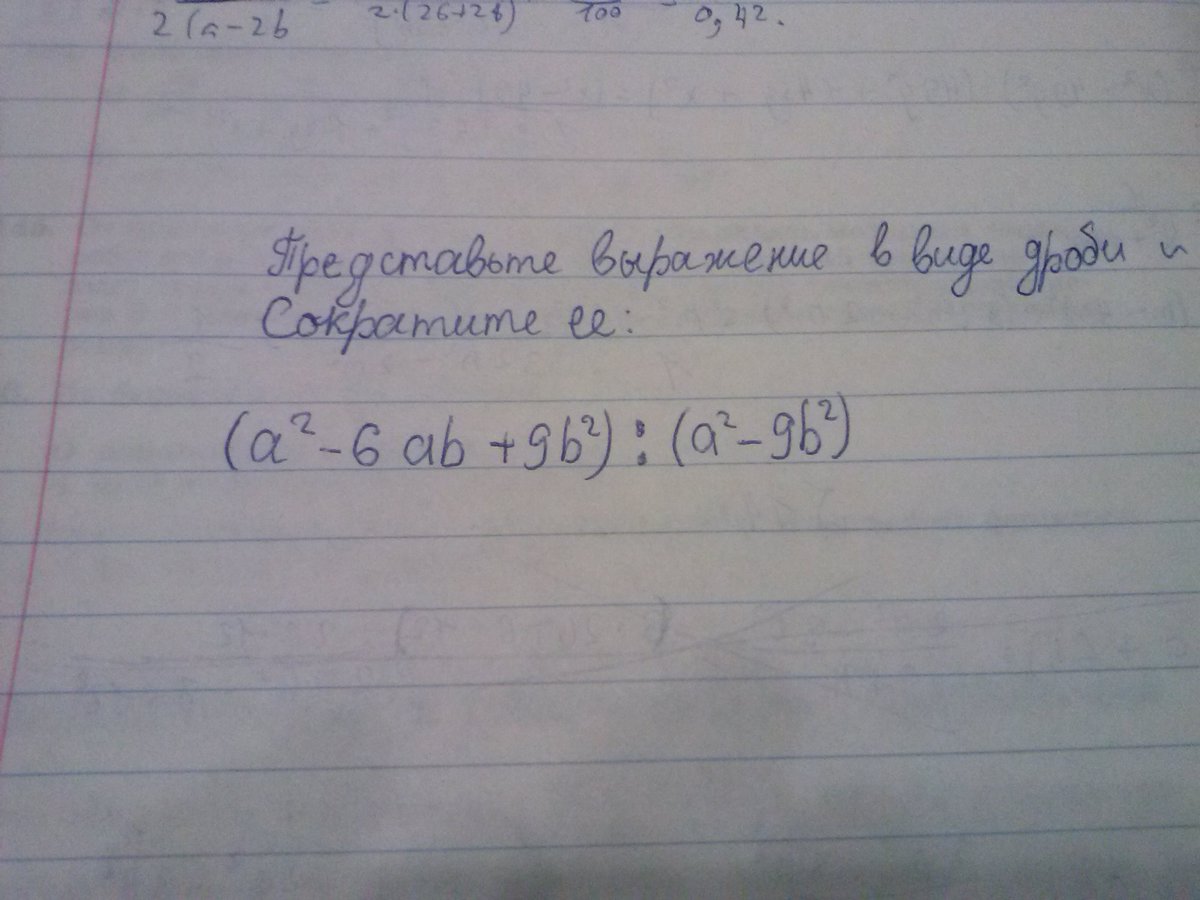 2(a-2b 2·(26+28) 100 0,42.
Представьте выражение в виде дроби и
Сократите ее:
(a²-6ab+9b²):(a²-9b²)